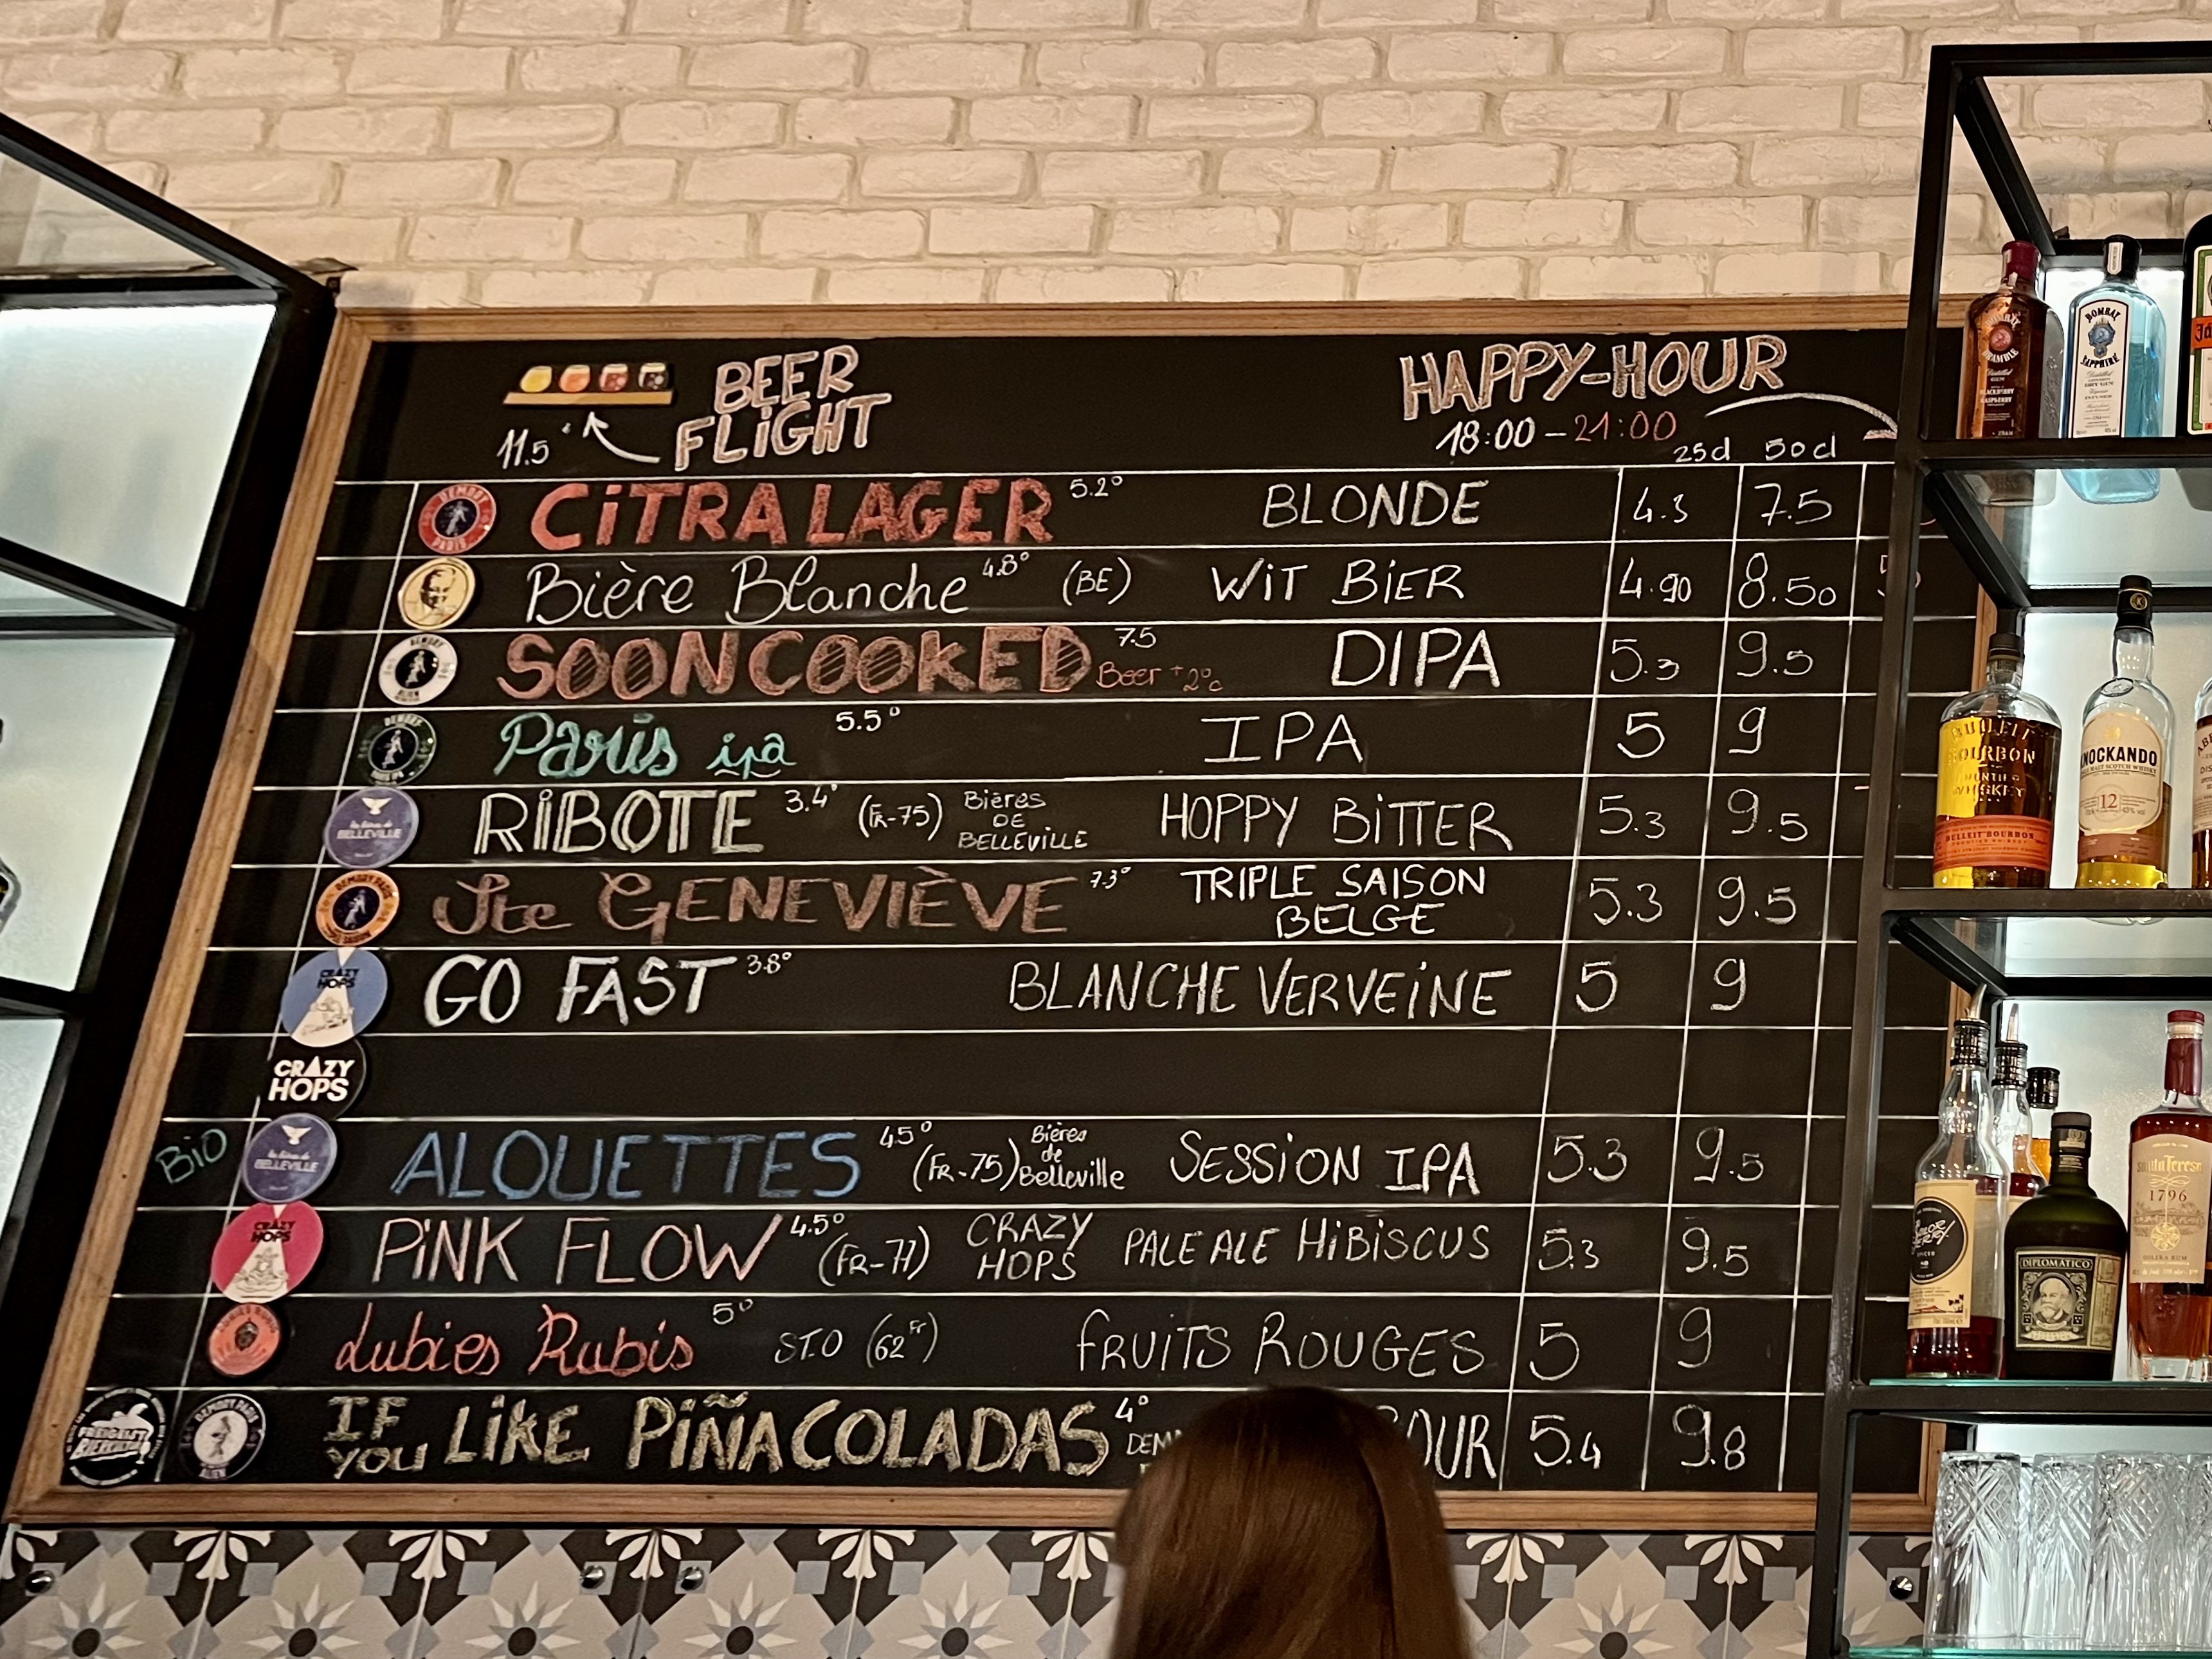 BEER
FLiGHT
11.5
HAPPY-HOUR
18:00 - 21:00
25cl 50cl
DEMORY PARIS CiTRA LAGER 5.2° BLONDE 4.3 7.5
Bière Blanche 4.8° (BE) WiT BiER 4.90 8.50
DEMORY SOON COOKED 7.5 Beer +2°c DIPA 5.3 9.5
DEMORY PARIS IPA Paris ipa 5.5° IPA 5 9
les bières de BELLEVILLE RiBOTE 3.4° (FR-75) Bières DE BELLEVILLE HOPPY BiTTER 5.3 9.5
DEMORY PARIS Ste GENEVIÈVE 7.3° TRIPLE SAISON BELGE 5.3 9.5
CRAZY HOPS GO FAST 3.8° BLANCHE VERVEiNE 5 9
CRAZY HOPS
BiO les bières de BELLEVILLE ALOUETTES 4.5° (FR-75) Bières de Belleville SESSiON IPA 5.3 9.5
CRAZY HOPS PiNK FLOW 4.5° (FR-77) CRAZY HOPS PALE ALE HiBiSCUS 5.3 9.5
Lubies Rubis 5° ST.O (62 Fr) FRUiTS ROUGES 5 9
FREIGEIST BIERKULTUR DEMORY PARIS IF YOU LiKE PiÑA COLADAS 4° 5.4 9.8
BRAMBLE
BOMBAY
SAPPHIRE
BULLEIT
BOURBON
WHISKEY
BULLEIT BOURBON
KNOCKANDO
12
SAILOR JERRY
DIPLOMÁTICO
Santa Teresa
1796